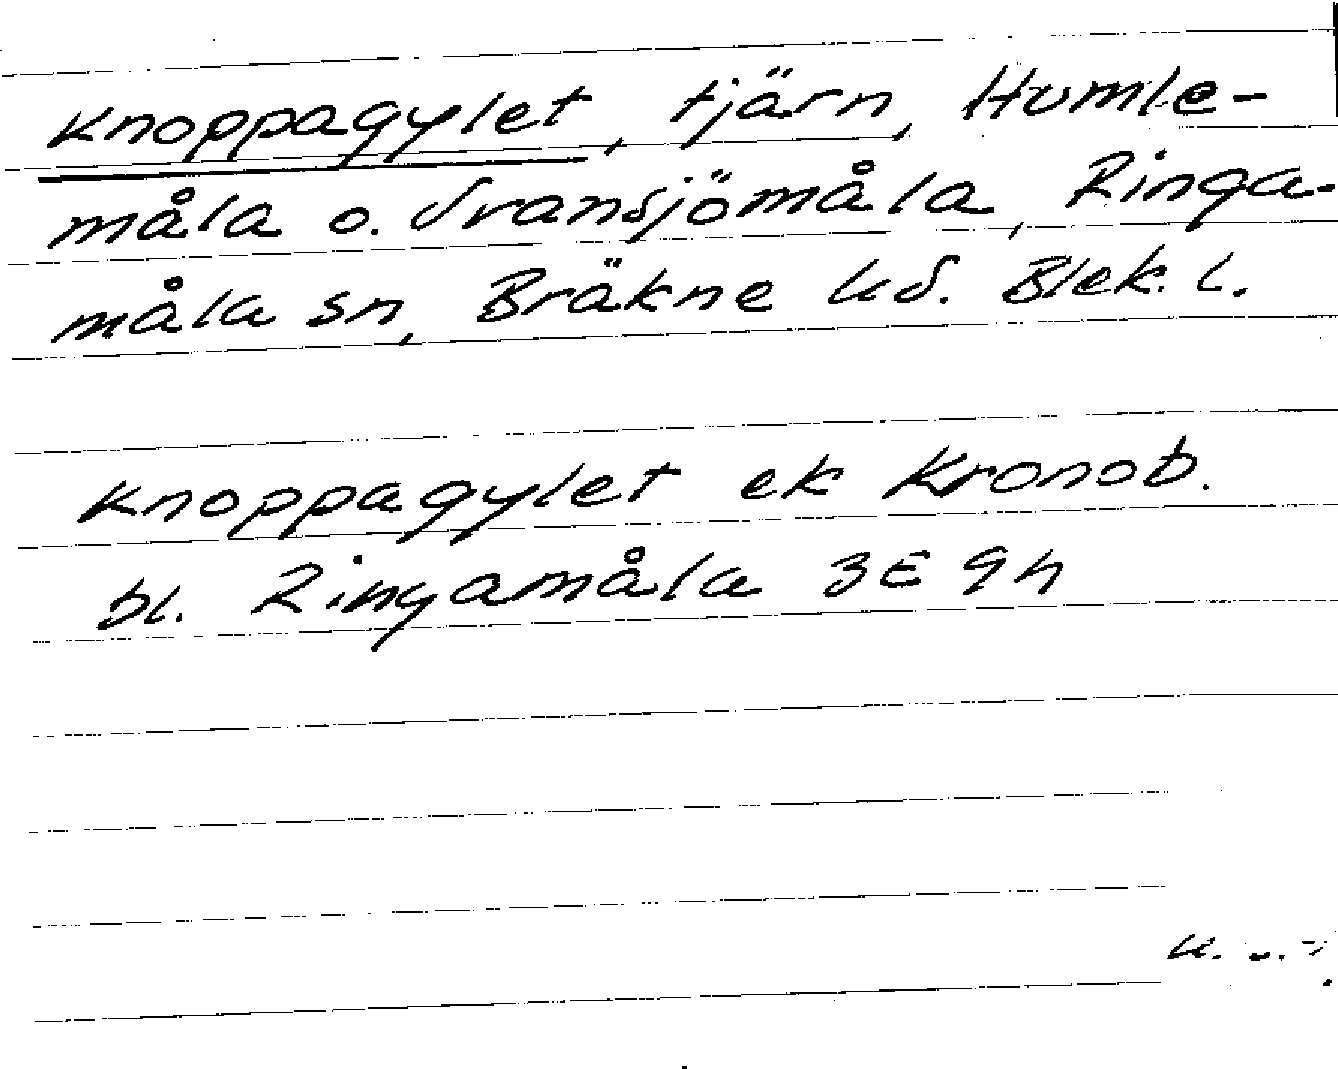 Knoppagylet, tjärn, Humle-
måla o. Svansjömåla, Ringa-
måla sn, Bräkne hd. Blek. l.
Knoppagylet ek Kronob.
bl. Ringamåla 3E 9h